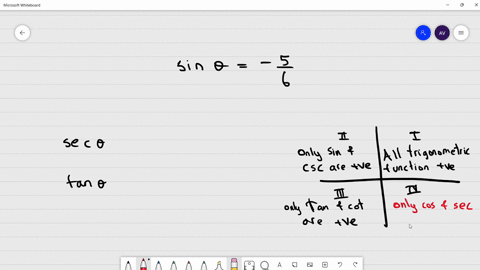 Microsoft Whiteboard
AV
sin θ = - 5/6
sec θ
tan θ
II
only sin &
csc are +ve
I
All trigonometric
function +ve
III
only tan & cot
are +ve
IV
only cos & sec